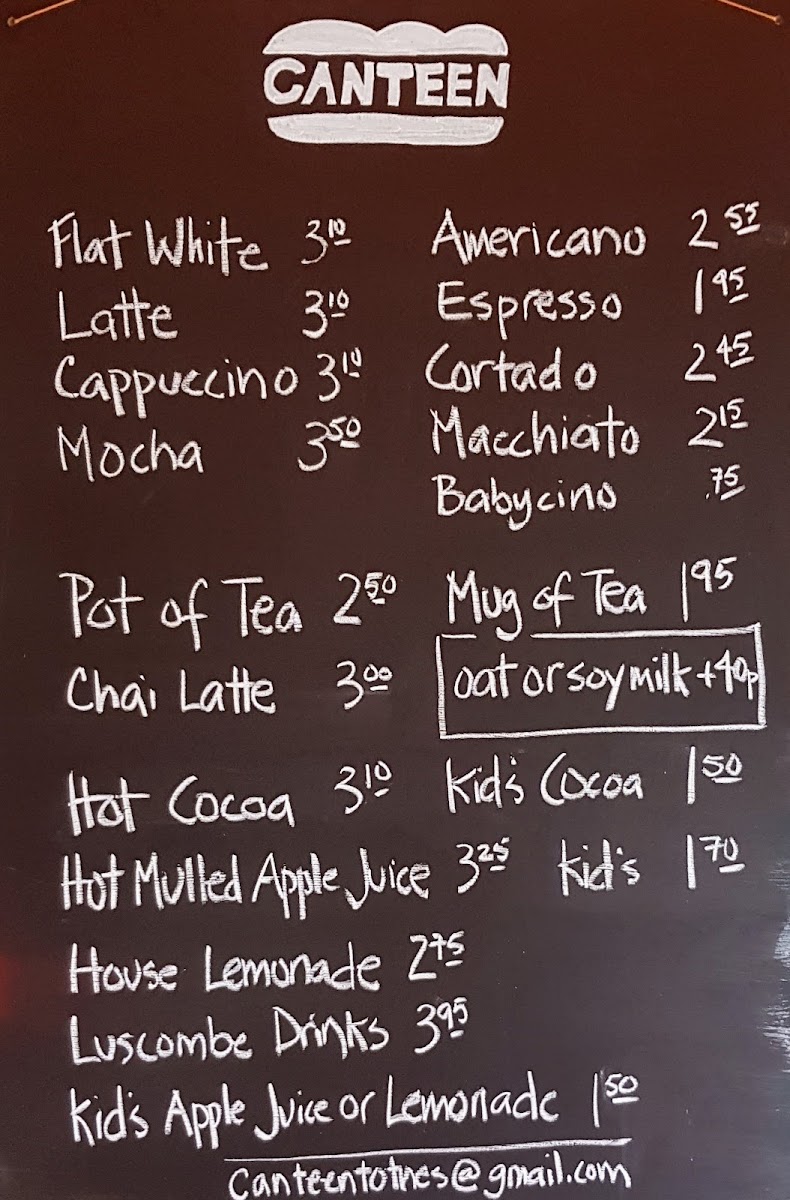 CANTEEN
Flat White 3.10 Americano 2.55
Latte 3.10 Espresso 1.95
Cappuccino 3.10 Cortado 2.45
Mocha 3.50 Macchiato 2.15
Babycino .75
Pot of Tea 2.50 Mug of Tea 1.95
Chai Latte 3.00 oat or soy milk +40p
Hot Cocoa 3.10 Kid's Cocoa 1.50
Hot Mulled Apple Juice 3.25 Kid's 1.70
House Lemonade 2.75
Luscombe Drinks 3.95
Kid's Apple Juice or Lemonade 1.50
canteentotnes@gmail.com